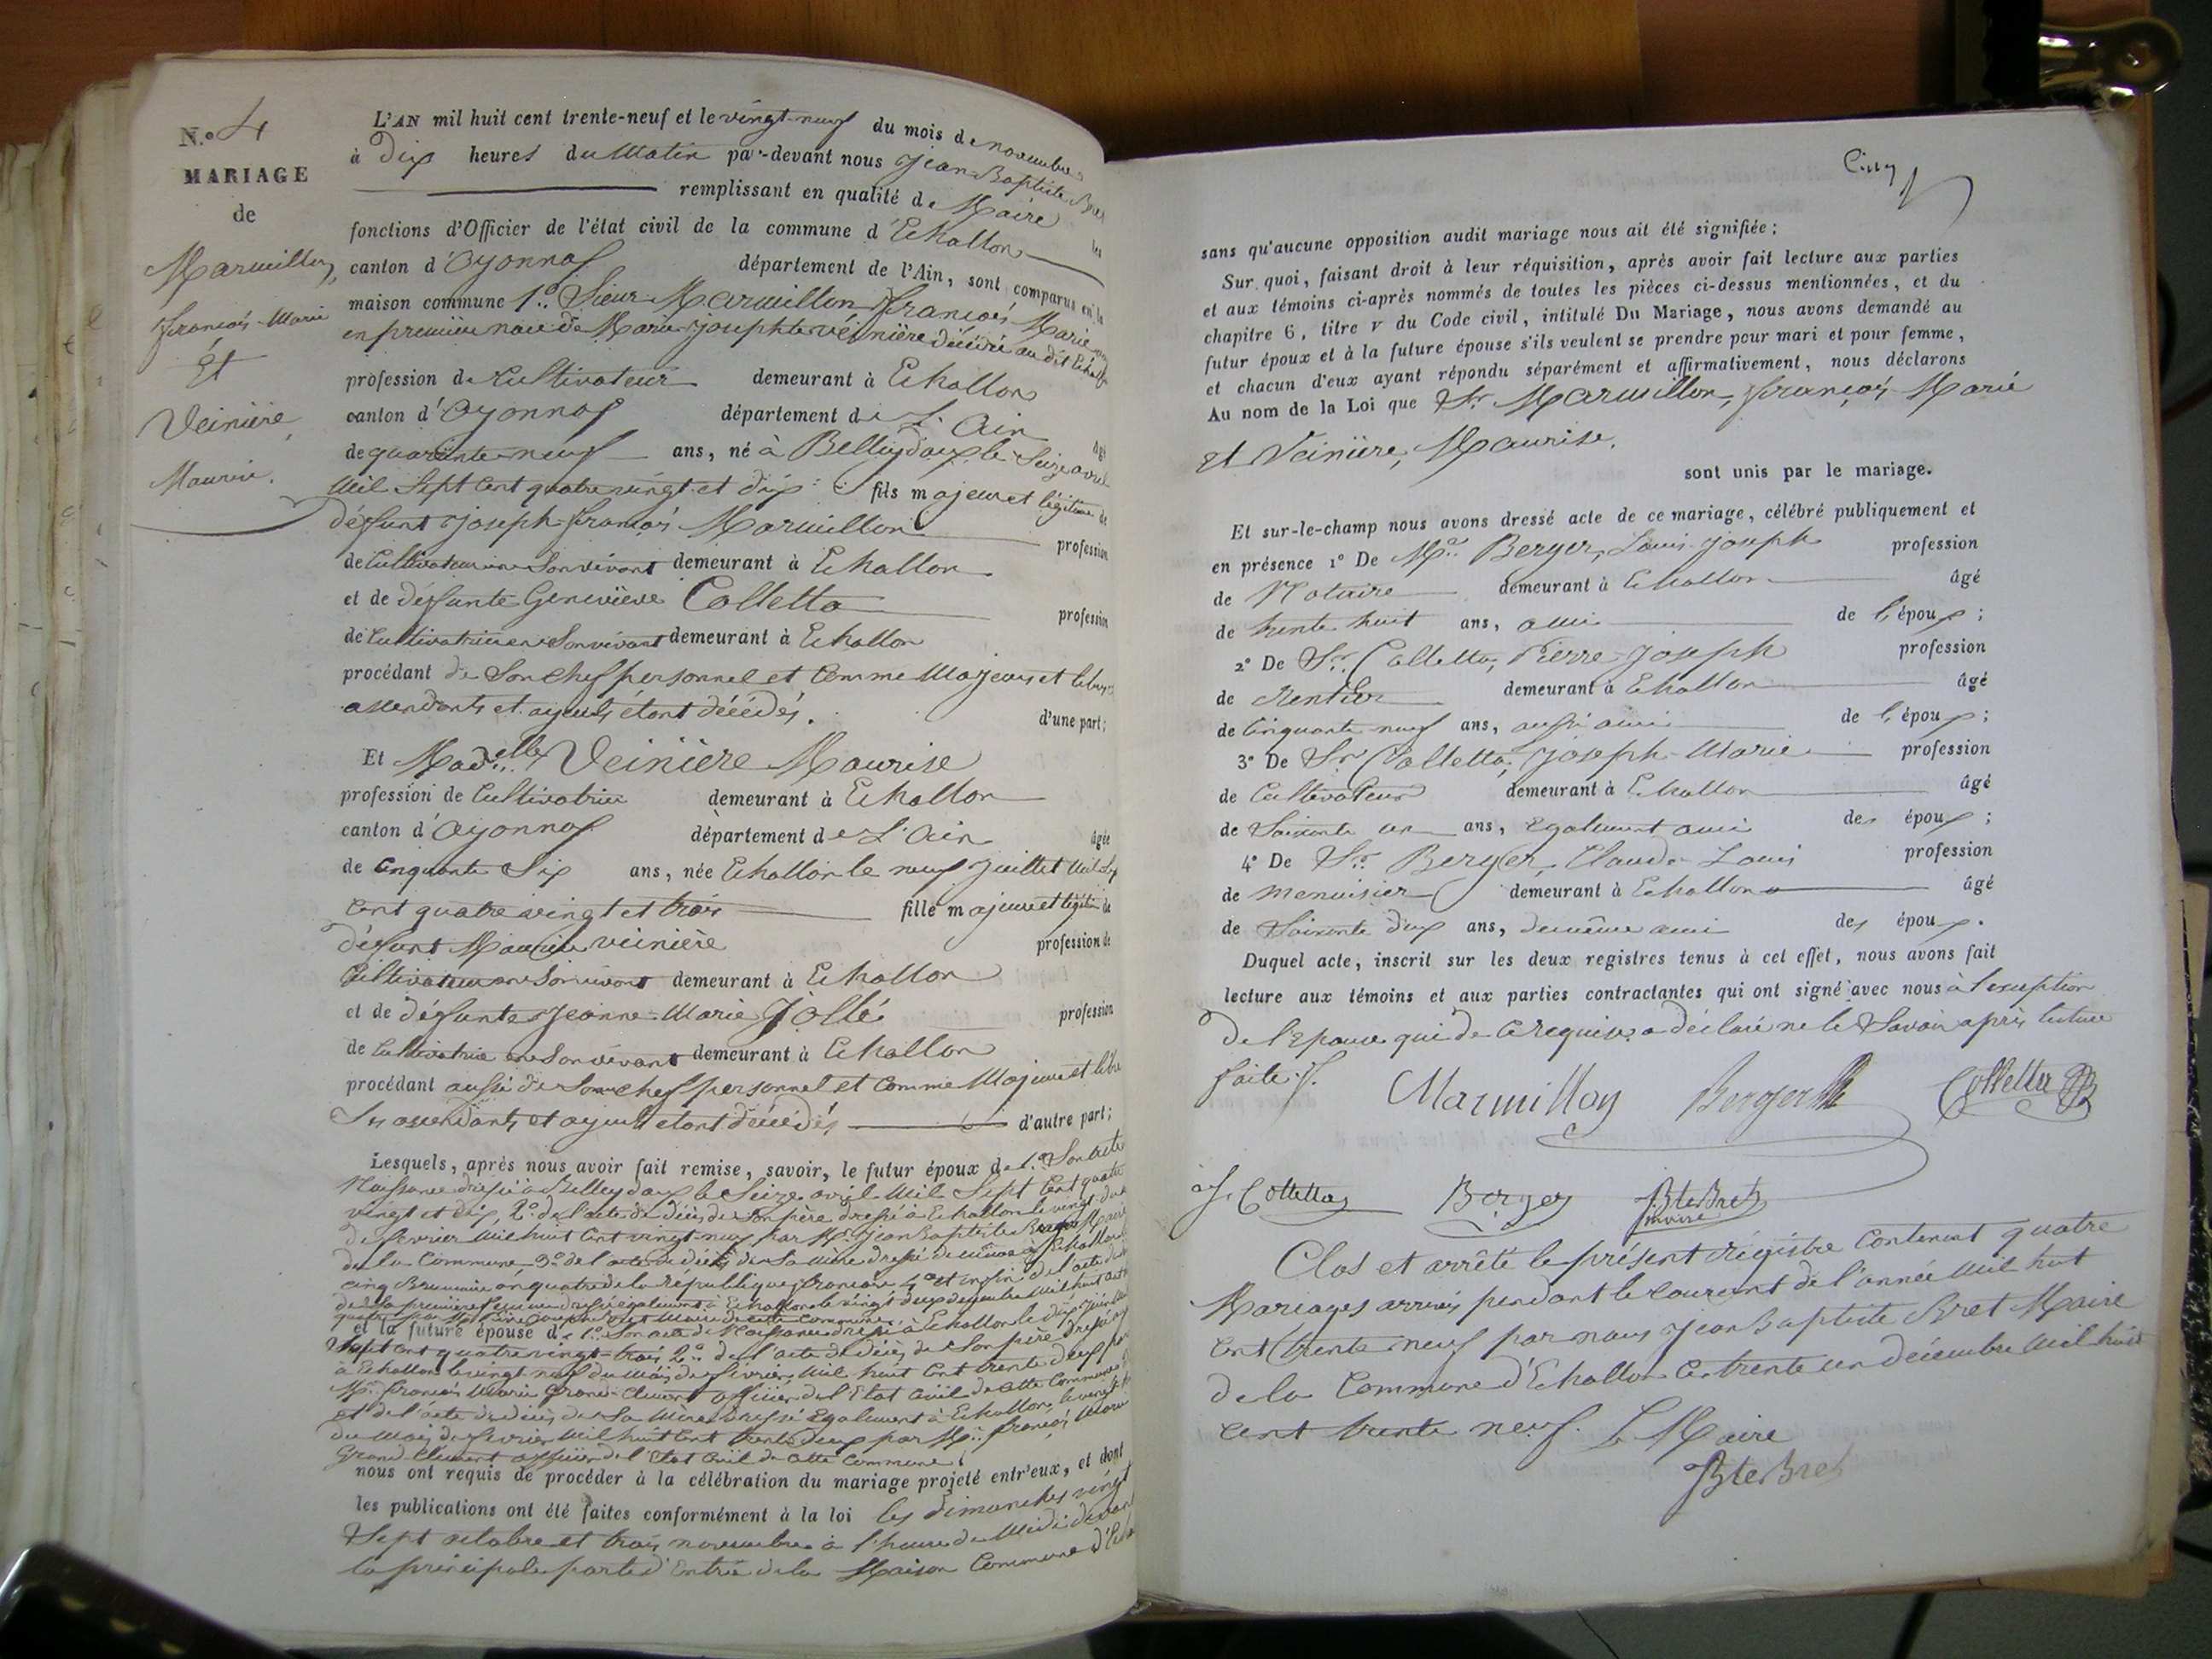 N.º 4
MARIAGE
de
Marmillon,
François-Marie
Et
Veinière,
Maurise.
L'AN mil huit cent trente-neuf et le vingt-neuf du mois de novembre
à Dix heures du Matin par-devant nous Jean Baptiste Bret
remplissant en qualité de Maire les
fonctions d'Officier de l'état civil de la commune d'Echallon
canton d'Oyonnax département de l'Ain, sont comparus en la
maison commune 1.º Sieur Marmillon, François Marie
en première noce de Marie Josephte Veinière décédée au dit Echallon
profession de Cultivateur demeurant à Echallon
canton d'Oyonnax département de L'Ain âgé
de quarante-neuf ans, né à Belleydoux le Seize avril
Mil Sept Cent quatre vingt et dix fils majeur et légitime de
défunt Joseph-François Marmillon profession
de Cultivateur en Son vivant demeurant à Echallon
et de défunte Geneviève Colletta profession
de Cultivatrice en Son vivant demeurant à Echallon
procédant de Son chef personnel et Comme Majeur et libre, ses
ascendants et ayeuls étant décédés. d'une part;
Et Mad.elle Veinière Maurise
profession de Cultivatrice demeurant à Echallon
canton d'Oyonnax département de L'Ain âgée
de Cinquante Six ans, née Echallon le neuf Juillet Mil Sept
Cent quatre vingt et trois fille majeure et légitime de
défunt Maurice Veinière profession de
Cultivateur en Son vivant demeurant à Echallon
et de défunte Jeanne-Marie Jollé profession
de Cultivatrice en Son vivant demeurant à Echallon
procédant aussi de Son chef personnel et Comme Majeure et libre
Ses ascendants et ayeuls étant décédés d'autre part;
Lesquels, après nous avoir fait remise, savoir, le futur époux de 1.º Son acte
Naissance dressé à Belleydoux le Seize avril Mil Sept Cent quatre
vingt et Dix, 2.º de l'acte de décès de Son père dressé à Echallon le vingt
de février Mil huit Cent vingt-neuf par M.r Jean Baptiste Maire
de la Commune 3.º de l'acte de décès de Sa mère dressé de même à Echallon
cinq Brumaire an quatre de la république française 4.º et enfin de l'acte de décès
de Sa première dressé également à Echallon le vingt deux décembre Mil huit Cent
et la future épouse d. 1.º Son acte de Naissance dressé à Echallon le dix Juillet
Sept Cent quatre vingt-trois 2.º de l'acte de décès de Son père dressé
à Echallon le vingt neuf du Mois de février Mil huit Cent trente deux par
M.r François Marie Grand-Clément officier de l'Etat Civil de cette Commune
et de l'acte de décès de Sa Mère dressé également à Echallon, le vingt
du Mois de février Mil huit Cent trente deux par M.r François Marie
Grand-Clément officier de l'Etat Civil de cette Commune
nous ont requis de procéder à la célébration du mariage projeté entr'eux, et dont
les publications ont été faites conformément à la loi les dimanches vingt
Sept octobre et trois novembre à l'heure de Midi devant
la principale porte d'Entrée de la Maison Commune d'Echallon
Cinq
sans qu'aucune opposition audit mariage nous ait été signifiée;
Sur quoi, faisant droit à leur réquisition, après avoir fait lecture aux parties
et aux témoins ci-après nommés de toutes les pièces ci-dessus mentionnées, et du
chapitre 6, titre V du Code civil, intitulé Du Mariage, nous avons demandé au
futur époux et à la future épouse s'ils veulent se prendre pour mari et pour femme,
et chacun d'eux ayant répondu séparément et affirmativement, nous déclarons
Au nom de la Loi que Sr. Marmillon, François-Marie
et Veinière, Maurise.
sont unis par le mariage.
Et sur-le-champ nous avons dressé acte de ce mariage, célébré publiquement et
en présence 1º De M.e Berger, Louis-Joseph profession
de Notaire demeurant à Echallon âgé
de trente huit ans, ami de l'époux;
2º De Sr. Colletta, Pierre-Joseph profession
de Rentier demeurant à Echallon âgé
de Cinquante neuf ans, aussi ami de l'époux;
3º De Sr Colletta, Joseph-Marie profession
de Cultivateur demeurant à Echallon âgé
de Soixante un ans, également ami des époux;
4º De Sr. Berger, Claude Louis profession
de menuisier demeurant à Echallon âgé
de Soixante dix ans, de même ami des époux.
Duquel acte, inscrit sur les deux registres tenus à cet effet, nous avons fait
lecture aux témoins et aux parties contractantes qui ont signé avec nous à l'exception
De l'Epouse qui de ce requise a déclaré ne le Savoir après lecture
faite.
Marmillon Berger Colletta
J. Colletta Berger Bte Bret
maire
Clos et arrêté le présent régistre Contenant quatre
Mariages arrivés pendant le courant de l'année Mil huit
Cent trente neuf par nous Jean Baptiste Bret Maire
de la Commune d'Echallon Ce trente un décembre Mil huit
Cent trente neuf. Le Maire
Bte Bret